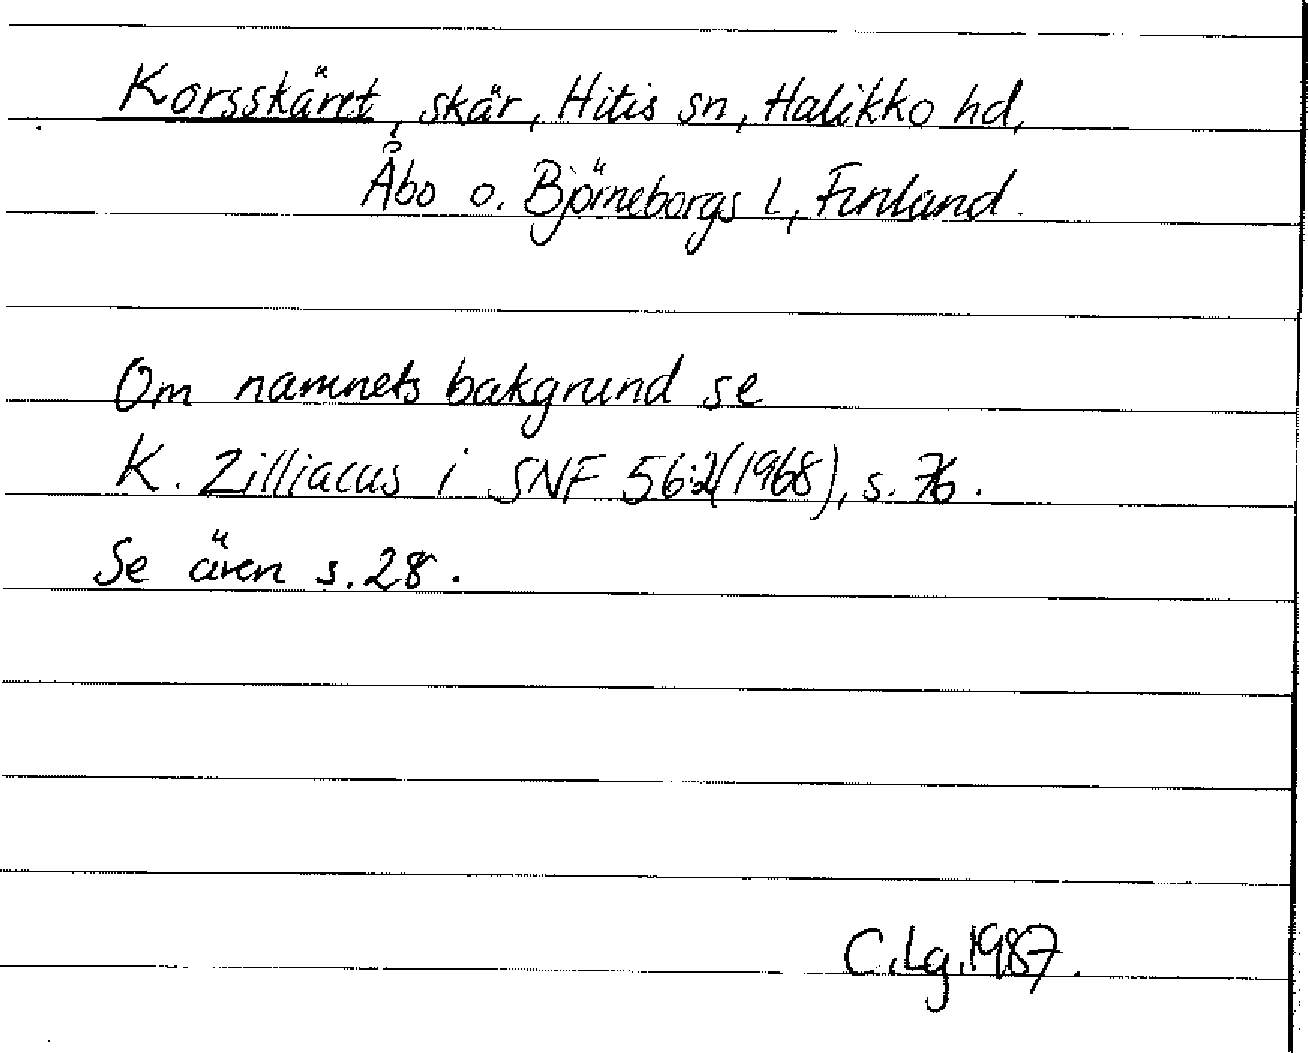 Korsskäret, skär, Hitis sn, Halikko hd,
Åbo o. Björneborgs l, Finland.
Om namnets bakgrund se
K. Zilliacus i SNF 56:2(1968), s. 76.
Se även s. 28.
C.Lg.1987.